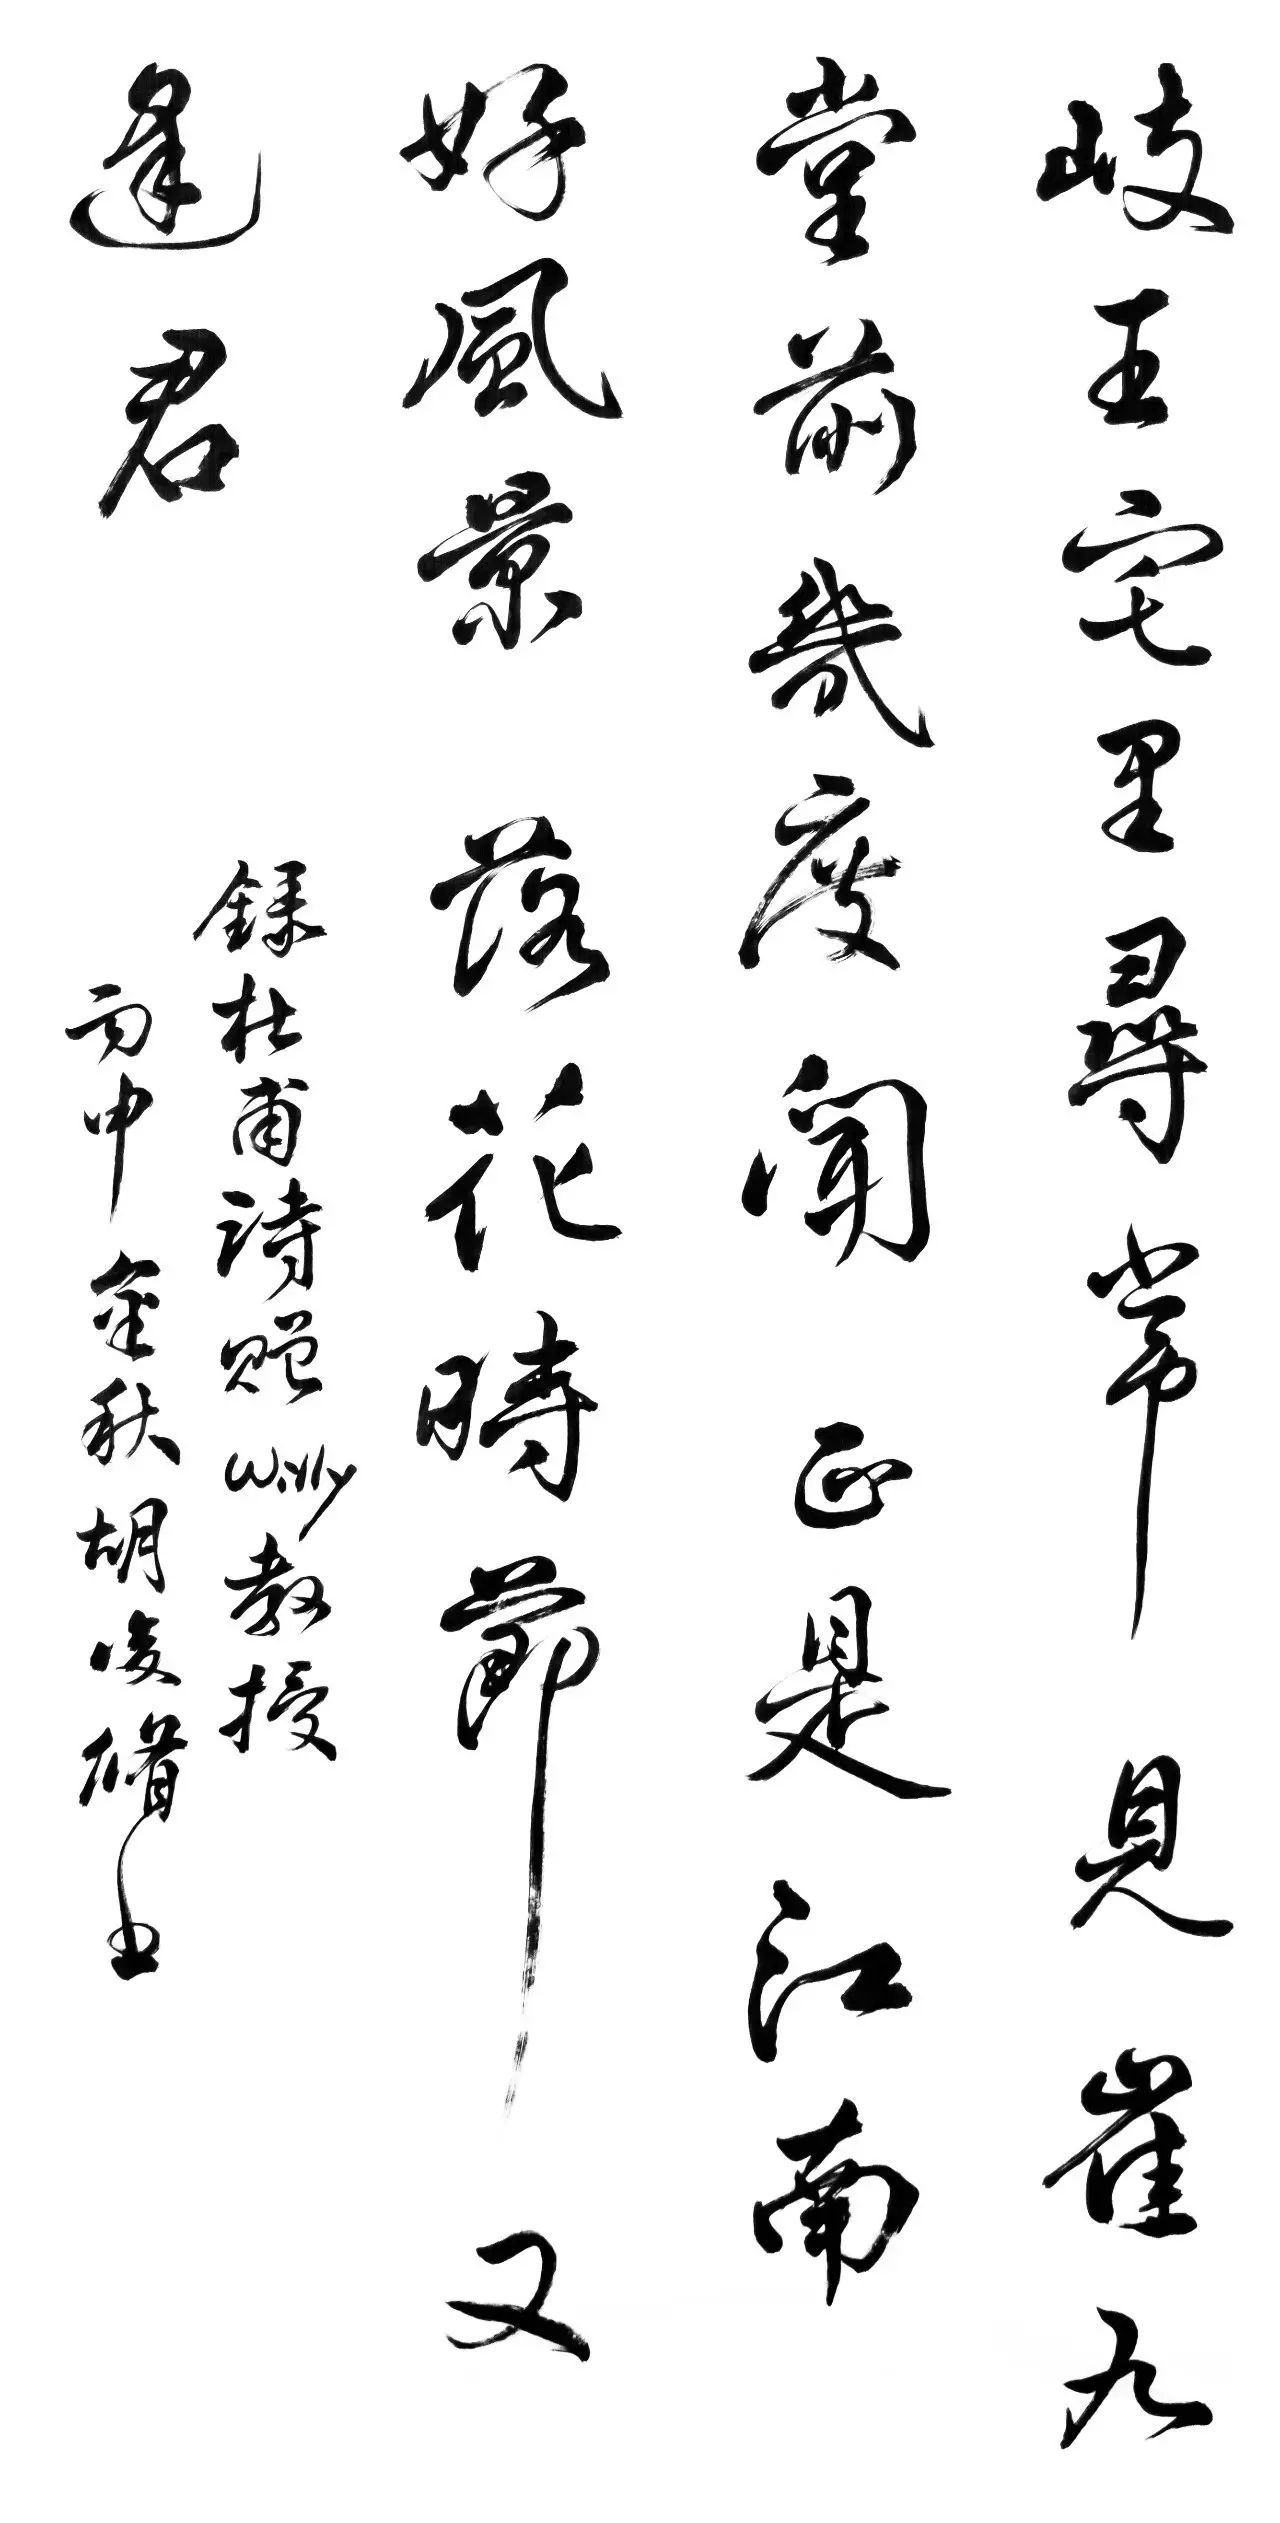 岐王宅里尋常見崔九
堂前幾度聞正是江南
好風景落花時節又
逢君
録杜甫詩赠Willy教授
丙申金秋胡